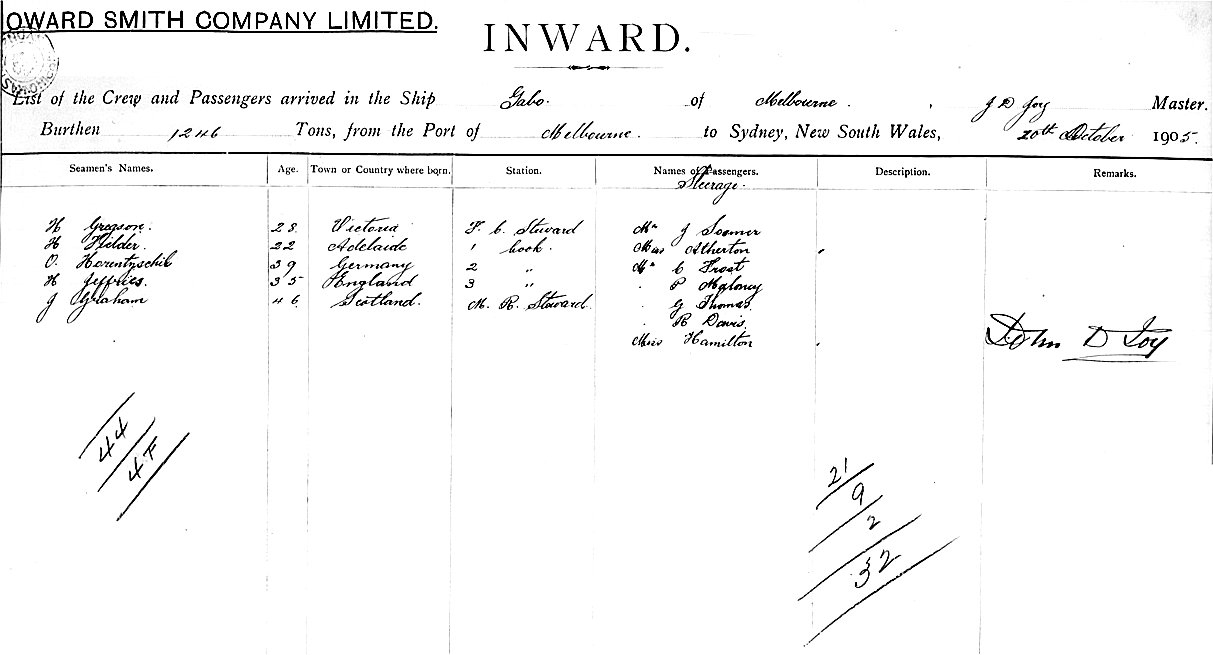 OWARD SMITH COMPANY LIMITED.
INWARD.
List of the Crew and Passengers arrived in the Ship Gabo. of Melbourne. , J D Joy Master.
Burthen 1246 Tons, from the Port of Melbourne. to Sydney, New South Wales, 20th October 1905.
Seamen's Names. Age. Town or Country where born. Station. Names of Passengers. Description. Remarks.
Steerage.
H Gregson. 28 Victoria F. C. Steward Mr J Soomer
H Fielder. 22 Adelaide 1 Cook. Miss Atherton
O. 39 Germany 2 " Mr C Frost
H Jeffries. 35 England 3 " P Maloney
J Graham 46 Scotland. M. R. Steward G Thomas
R Davis.
Miss Hamilton
John D Joy
44
4F
21
9
2
32